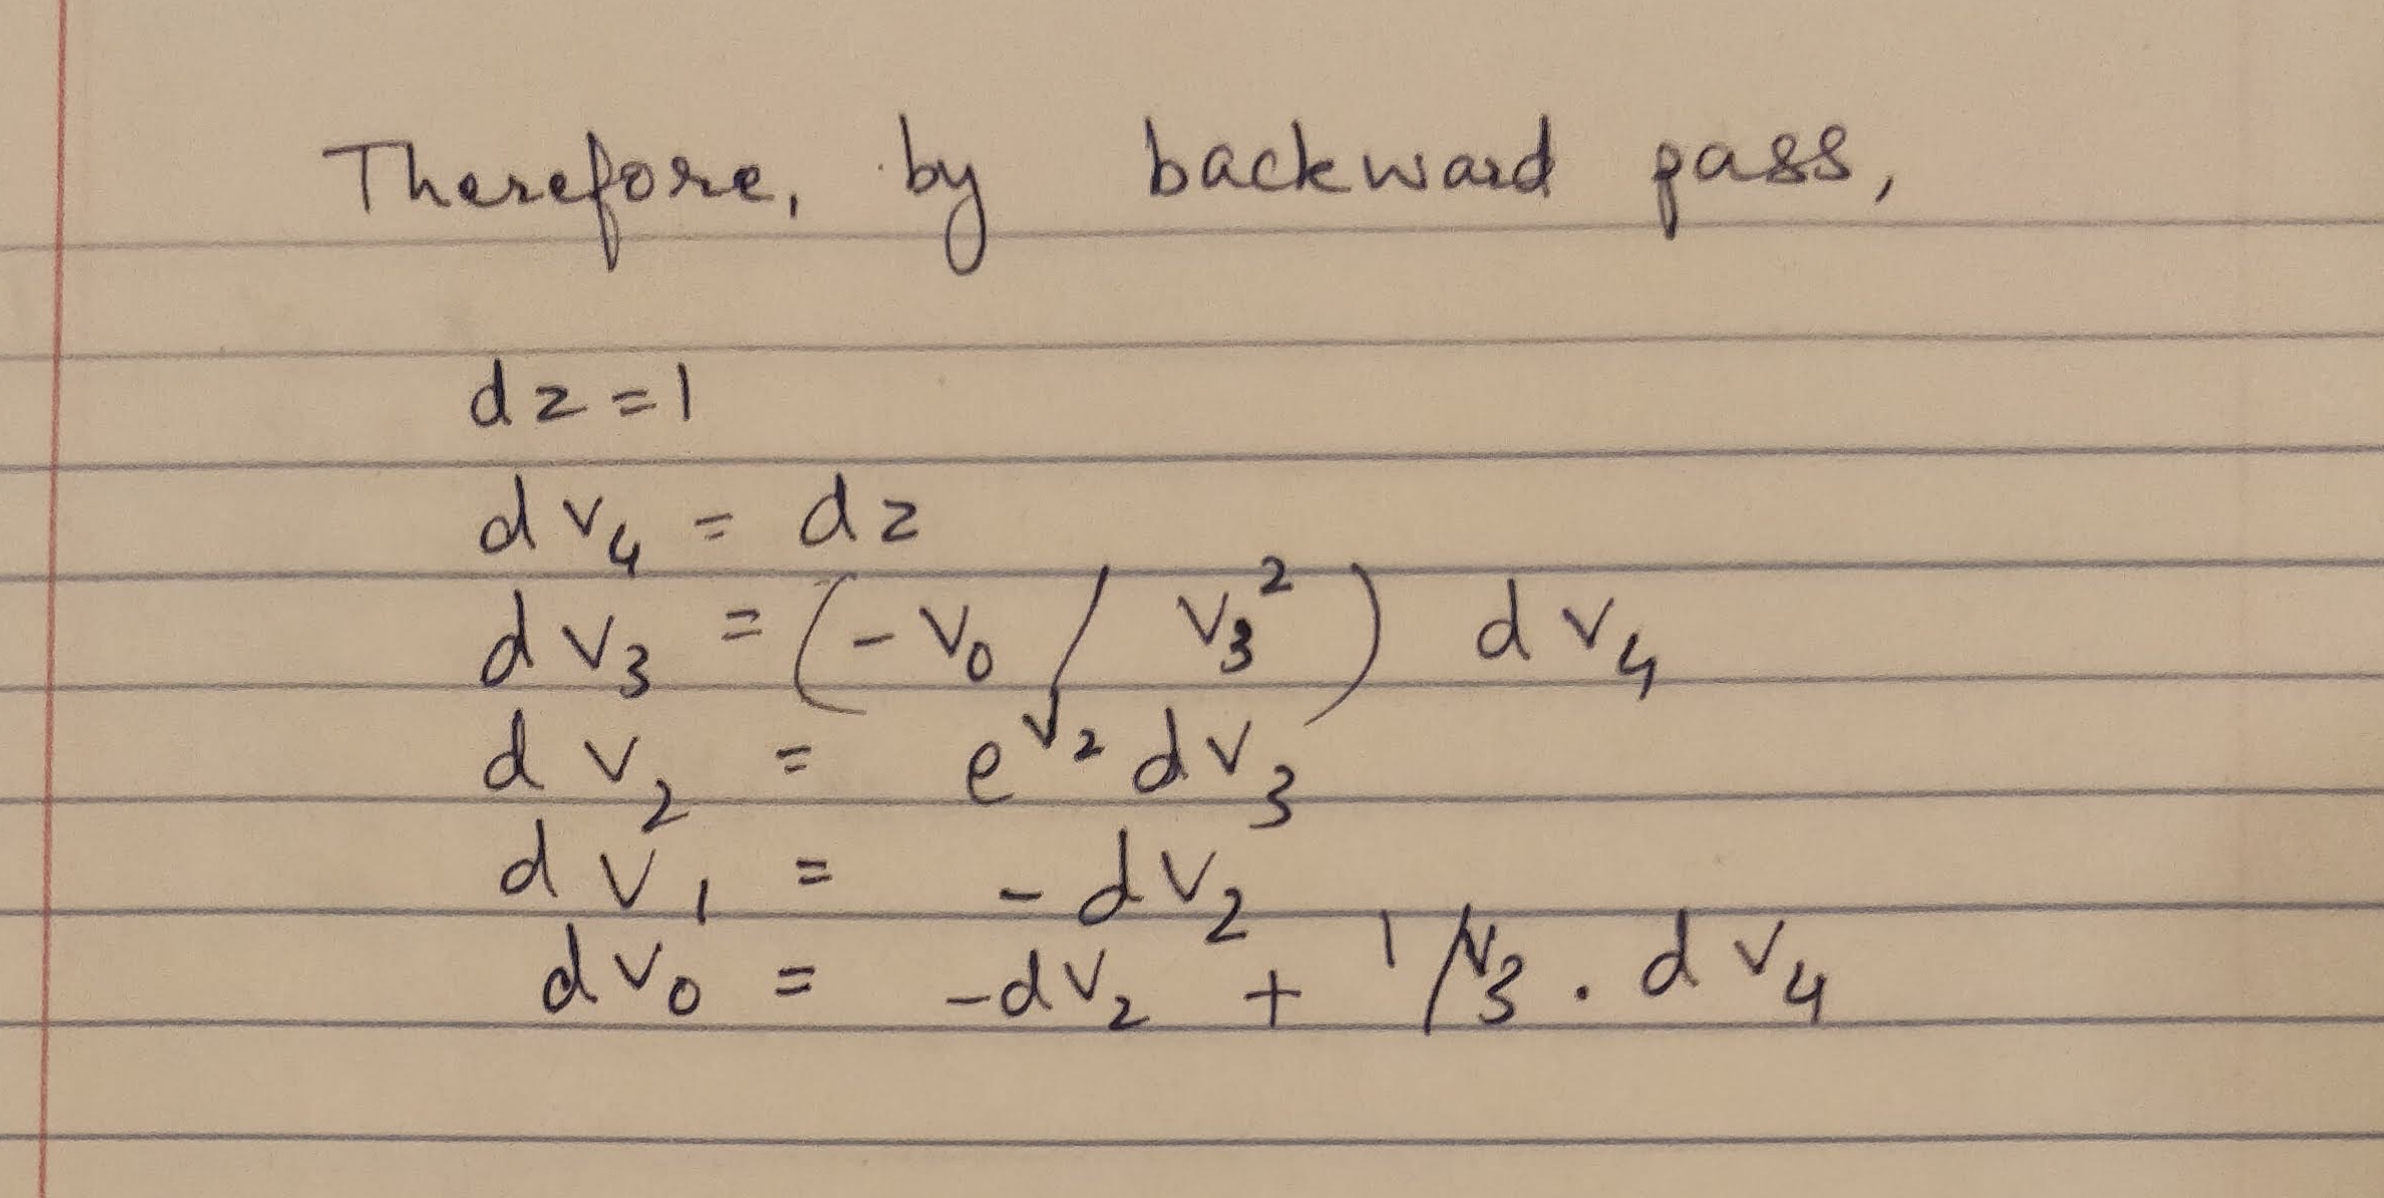 Therefore, by backward pass,
dz = 1
dv₄ = dz
dv₃ = (-v₀ / v₃²) dv₄
dv₂ = e^v₂ dv₃
dv₁ = -dv₂
dv₀ = -dv₂ + 1/v₃ . dv₄